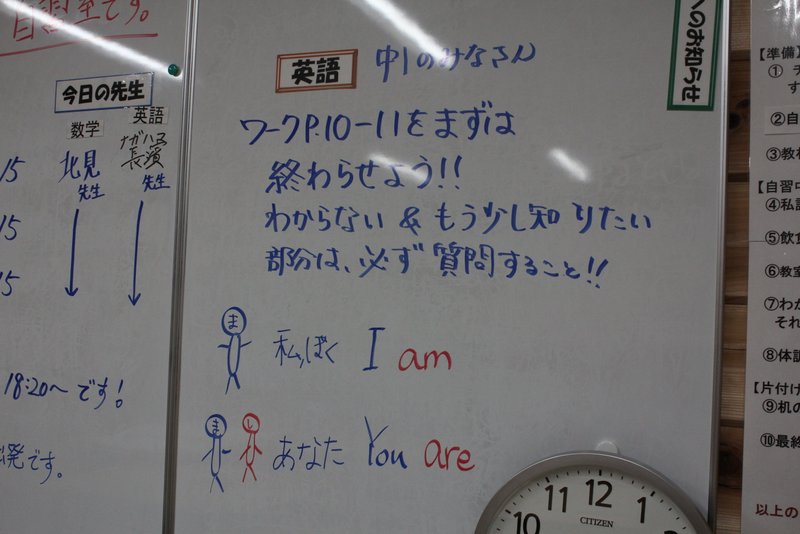 自習室です。
今日の先生
数学
英語
北見
先生
ナガハマ
長濱
先生
15
15
15
18:20〜です!
発です。
英語
中1のみなさん
ワークP.10-11をまずは
終わらせよう!!
わからない & もう少し知りたい
部分は、必ず質問すること!!
ま
私,ぼく I am
ま
し
あなた You are
のお知らせ
10 11 12 1
CITIZEN
【準備】
①
②自
③教材
【自習
④私語
⑤飲食
⑥教室
⑦わか
それ
⑧体調
【片付け
⑨机の
⑩最終
以上の